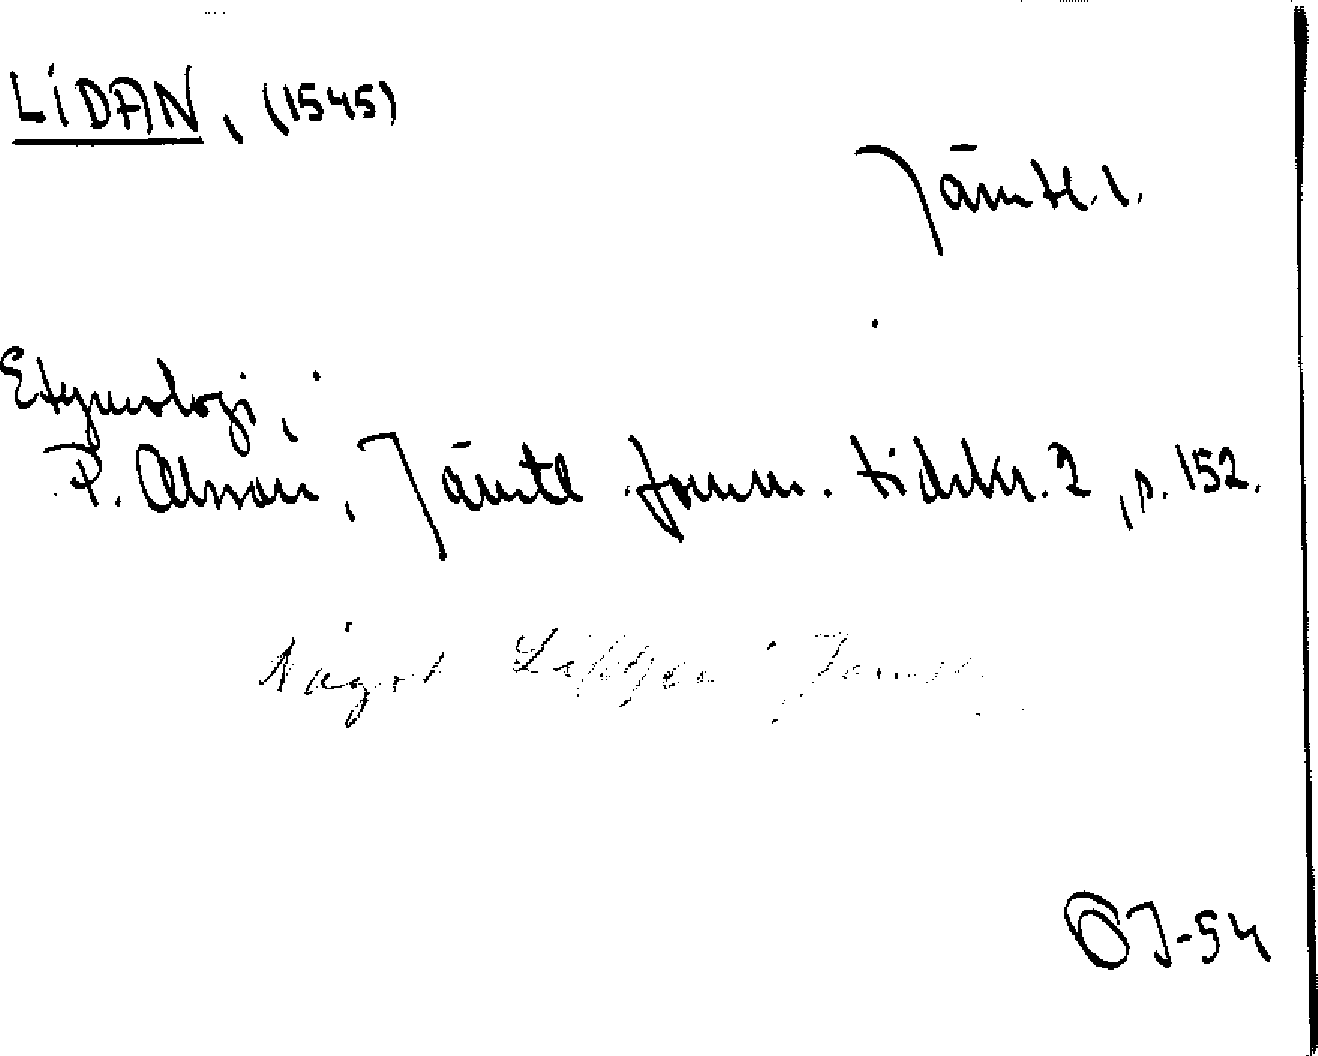 LIDAN, (1545)
Jämtl. l.
Etymologi,
P. Olsson, Jämtl fornm. tidskr. 2, p. 152.
Något i Jämtl.
OJ-54